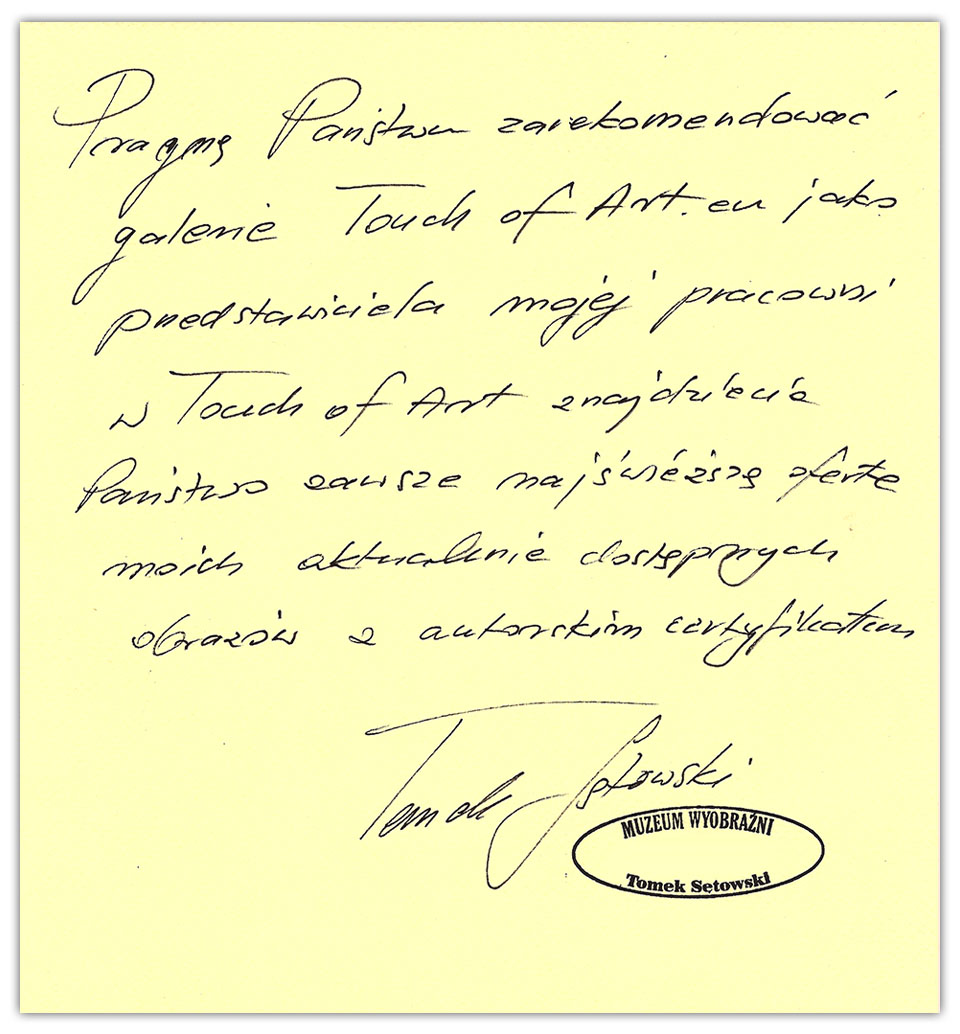 Pragnę Państwu zarekomendować
galerię Touch of Art.eu jako
przedstawiciela mojej pracowni
w Touch of Art znajdziecie
Państwo zawsze najświeższą ofertę
moich aktualnie dostępnych
obrazów z autorskim certyfikatem
Tomek Sętowski
MUZEUM WYOBRAŹNI
Tomek Sętowski